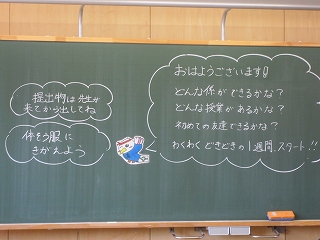 提出物は先生が
来てから出してね
体そう服に
きがえよう
おはようございます!!
どんな係ができるかな?
どんな授業があるかな?
初めての友達できるかな?
わくわく どきどきの1週間スタート!!